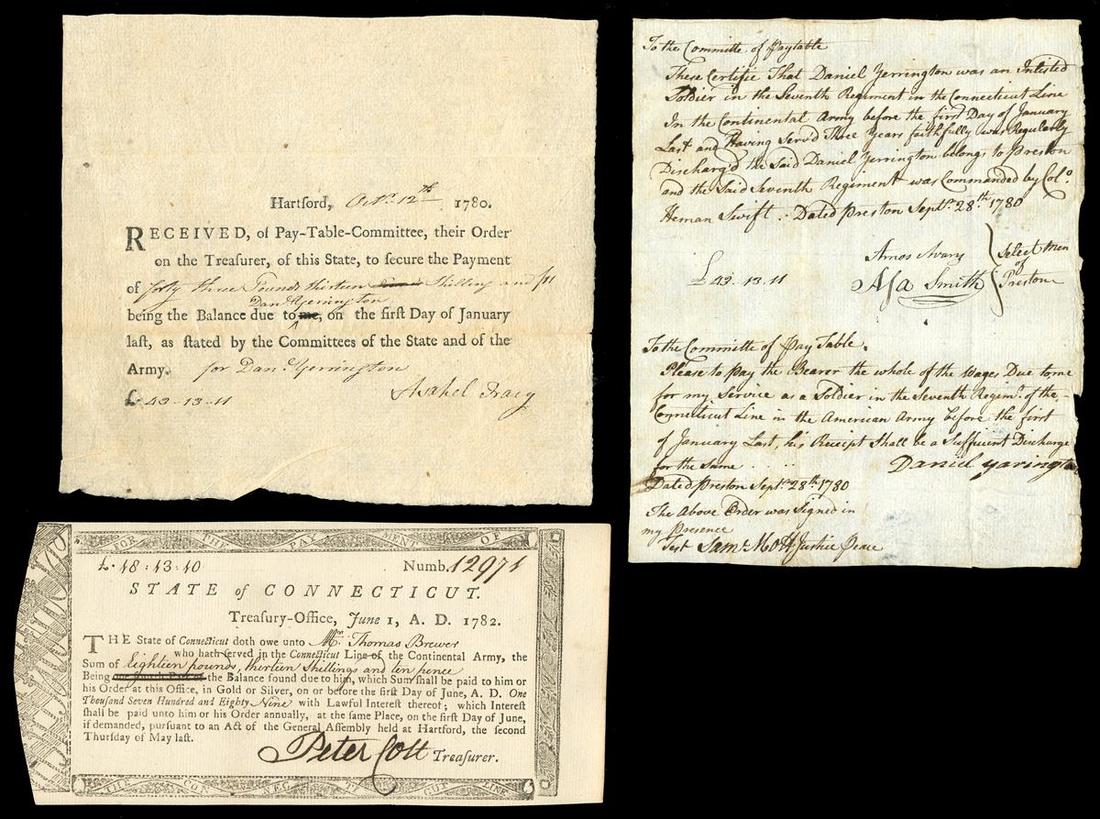 Hartford, Octr. 12th 1780.
RECEIVED, of Pay-Table-Committee, their Order
on the Treasurer, of this State, to secure the Payment
of forty three Pounds thirteen Shilling and
Dan Yerrington
being the Balance due to me, on the first Day of January
last, as stated by the Committees of the State and of the
Army. for Dan Yerrington
£ 43-13-11
Asahel
To the Committe of Paytable
These Certifie That Daniel Yerrington was an Inlested
Soldier in the Seventh Regiment in the Connecticut Line
In the Continental Army before the first Day of January
Last and Having Serv'd Three Years faithfully was Regularly
Discharg'd the Said Daniel Yerrington belongs to Preston
and the Said Seventh Regiment was Commanded by Colo.
Heman Swift .. Dated Preston Septr. 28th 1780
Amos Avary
£ 43..13..11 Asa Smith } Select Men of Preston
To the Committe of Pay Table.
Please to Pay the Bearer the whole of the Wages Due to me
for my Service as a Soldier in the Seventh Regimt. of the
Connecticut Line in the American Army before the first
of January Last, his Receipt Shall be a Sufficient Discharge
for the Same .... Daniel Yarington
Dated Preston Septr. 28th 1780
The Above Order was Signed in
my Presence
Test Saml. Mott Justice Peace
FOR THE PAYMENT OF
£. 18:13:10 Numb. 12971
STATE of CONNECTICUT.
Treasury-Office, June 1, A. D. 1782.
THE State of Connecticut doth owe unto Mr. Thomas Brewer
who hath served in the Connecticut Line of the Continental Army, the
Sum of Eighteen pounds, thirteen Shillings and ten pence
Being one fourth Part of the Balance found due to him, which Sum shall be paid to him or
his Order at this Office, in Gold or Silver, on or before the first Day of June, A. D. One
Thousand Seven Hundred and Eighty Nine with Lawful Interest thereof; which Interest
shall be paid unto him or his Order annually, at the same Place, on the first Day of June,
if demanded, pursuant to an Act of the General Assembly held at Hartford, the second
Thursday of May last.
Peter Colt Treasurer.
THE CONNECTICUT LINE